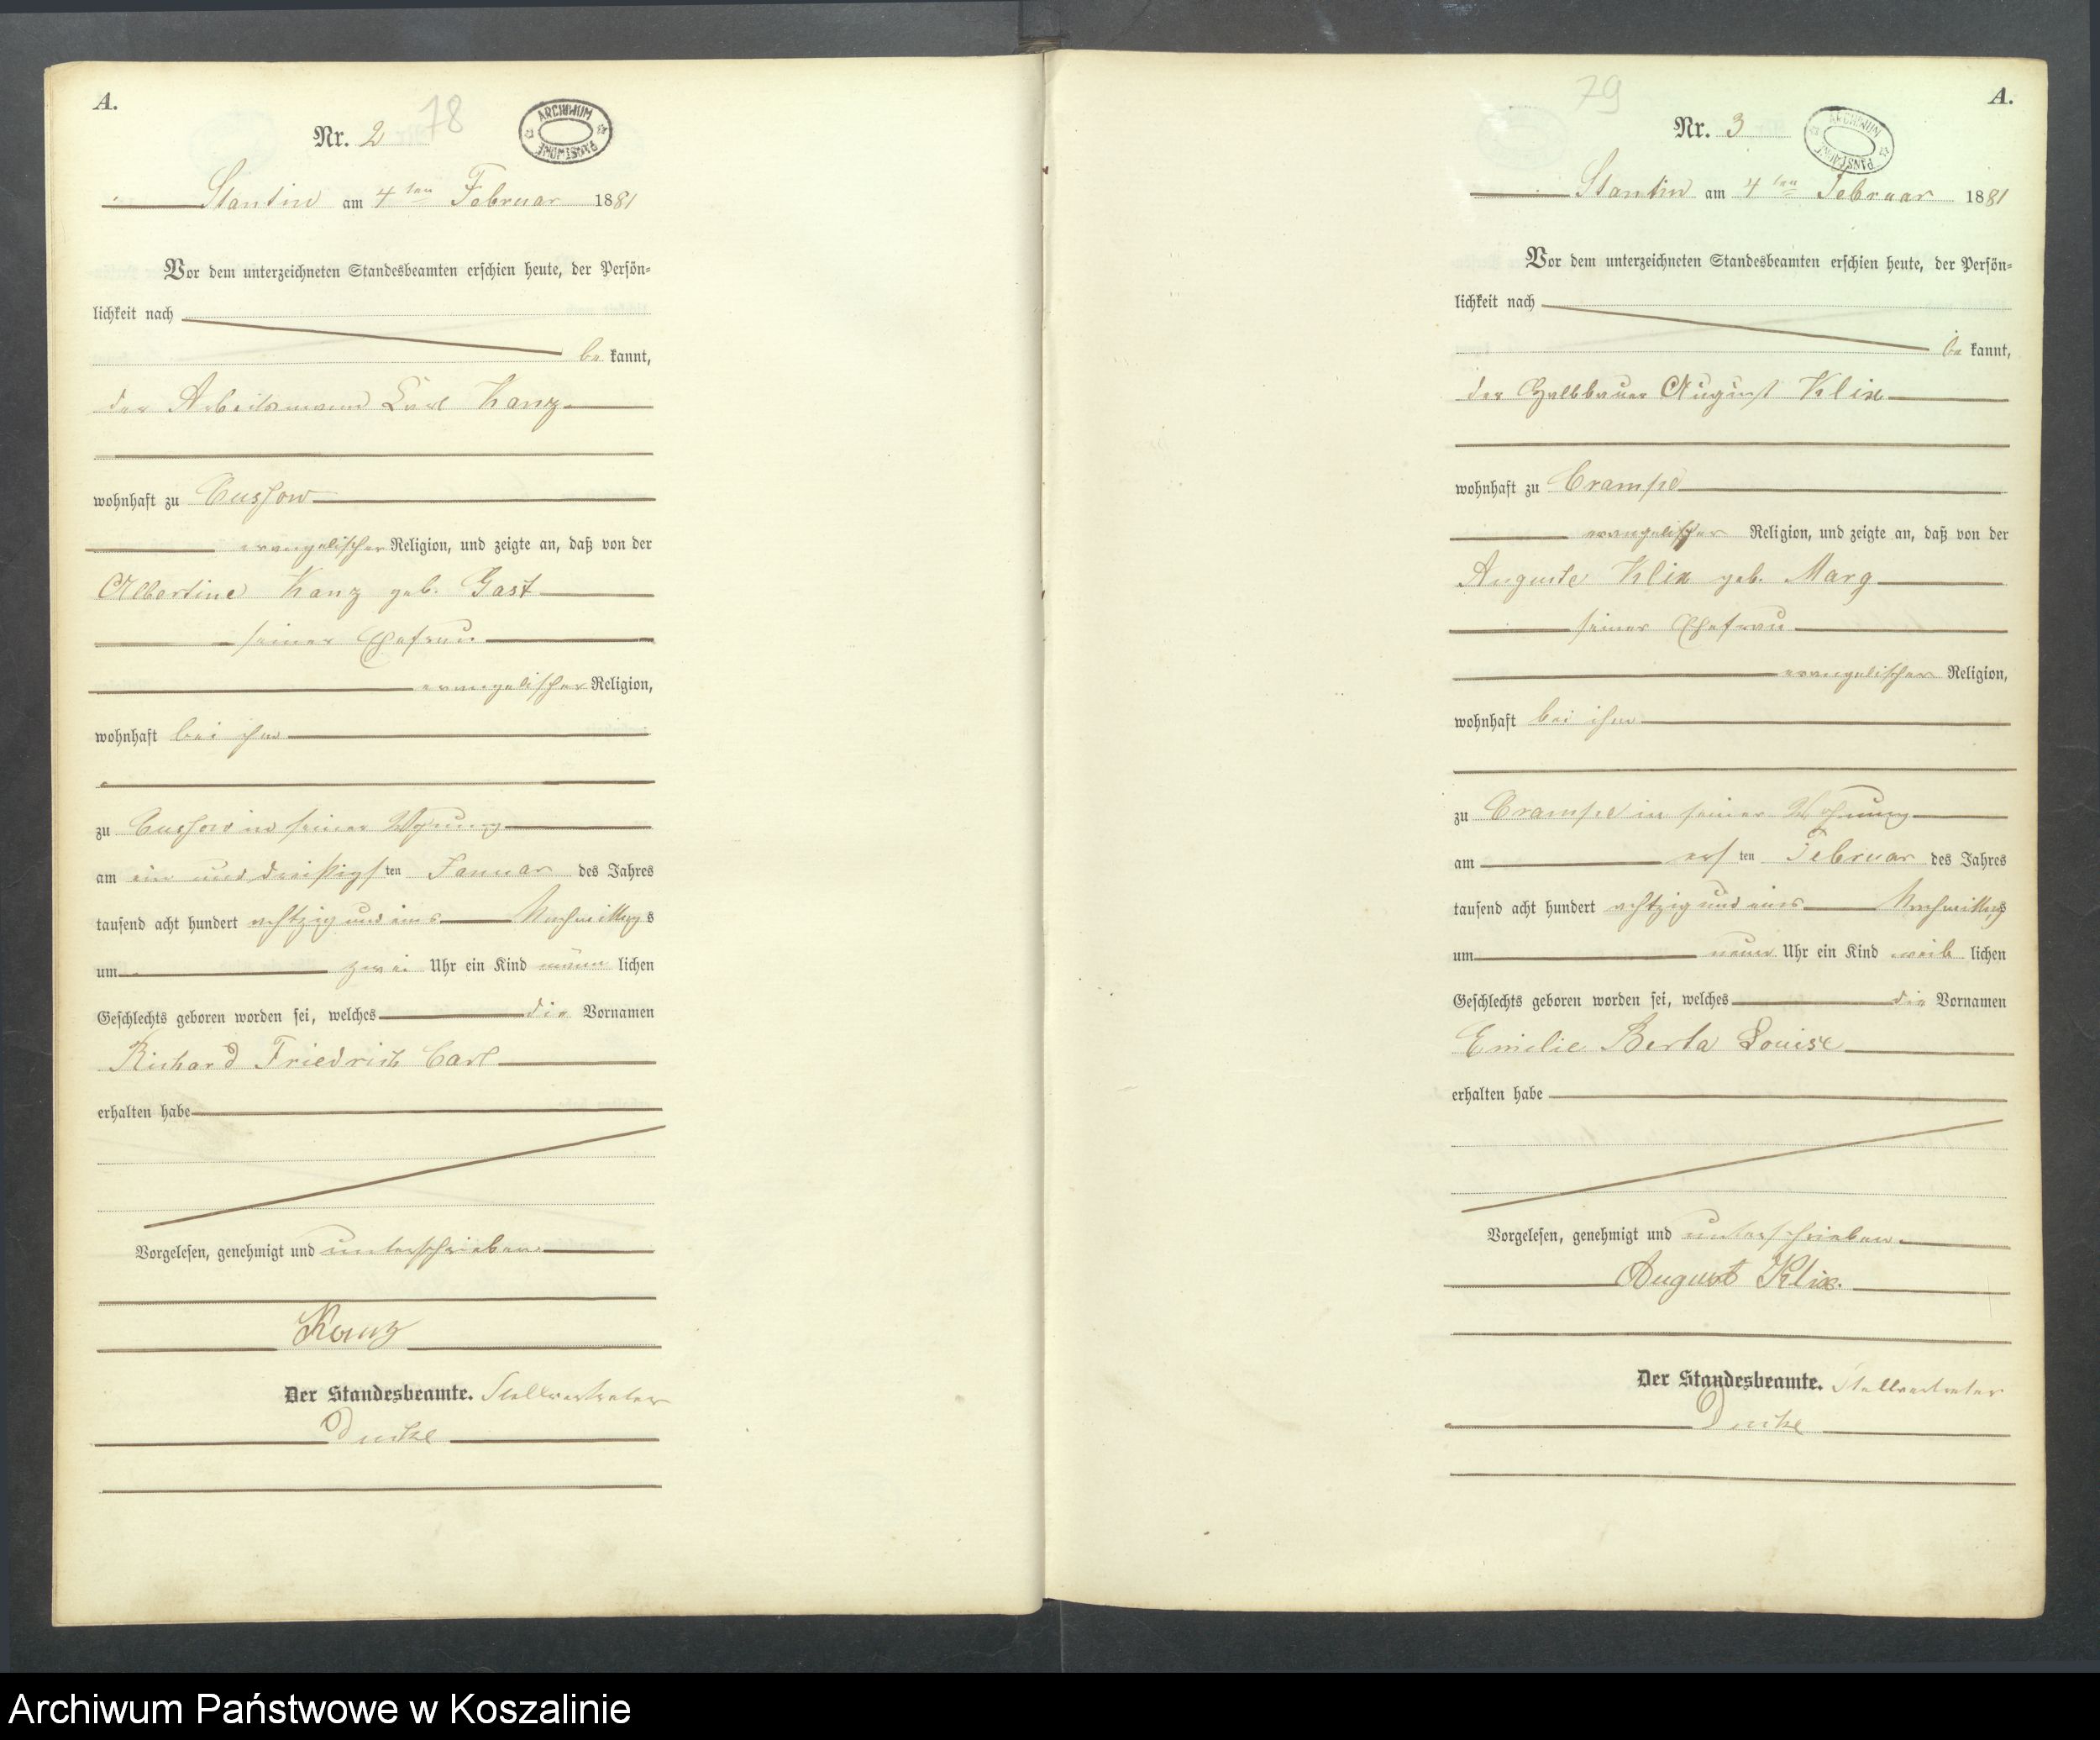 A.
78
ARCHIWUM PAŃSTWOWE
Nr. 2
Stantin am 4 ten Februar 1881
Vor dem unterzeichneten Standesbeamten erschien heute, der Persön-
lichkeit nach
be kannt,
der Arbeitsmann Carl Kanz
wohnhaft zu Cussow
evangelischer Religion, und zeigte an, daß von der
Albertine Kanz geb. Gast
seiner Ehefrau
evangelischer Religion,
wohnhaft bei ihm
zu Cussow in seiner Wohnung
am ein und dreißigsten Januar des Jahres
tausend acht hundert achtzig und eins Nachmittags
um zwei Uhr ein Kind männ lichen
Geschlechts geboren worden sei, welches die Vornamen
Richard Friedrich Carl
erhalten habe
Vorgelesen, genehmigt und unterschrieben.
Kanz
Der Standesbeamte. Stellvertreter
A.
79
ARCHIWUM PAŃSTWOWE
Nr. 3
Stantin am 4 ten Februar 1881
Vor dem unterzeichneten Standesbeamten erschien heute, der Persön-
lichkeit nach
be kannt,
der Halbbauer August Klix
wohnhaft zu Crampe
evangelischer Religion, und zeigte an, daß von der
Auguste Klix geb. Marg
seiner Ehefrau
evangelischer Religion,
wohnhaft bei ihm
zu Crampe in seiner Wohnung
am ersten Februar des Jahres
tausend acht hundert achtzig und eins Nachmittags
um neun Uhr ein Kind weib lichen
Geschlechts geboren worden sei, welches die Vornamen
Emilie Berta Louise
erhalten habe
Vorgelesen, genehmigt und unterschrieben.
August Klix.
Der Standesbeamte. Stellvertreter
Archiwum Państwowe w Koszalinie